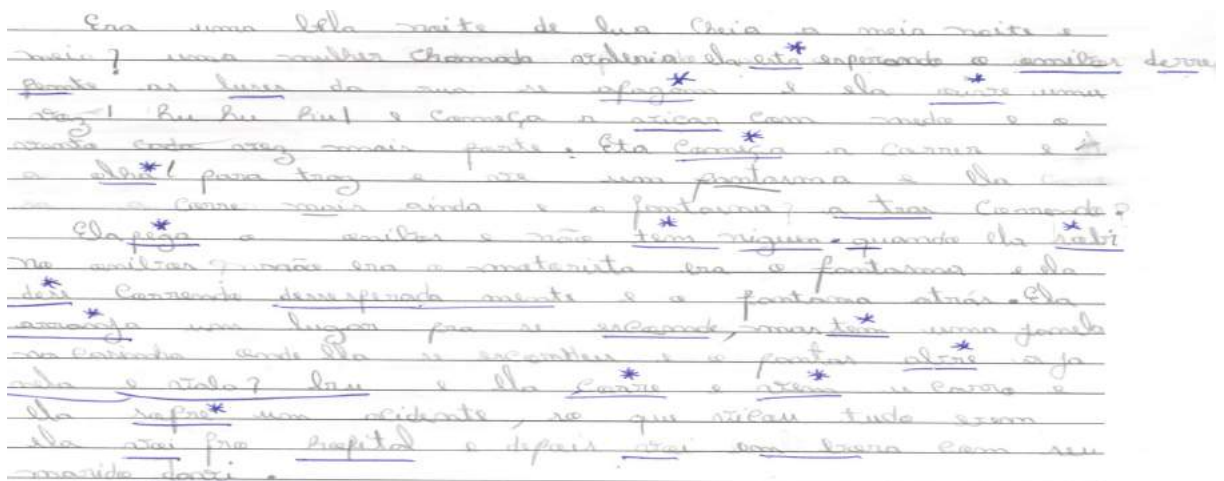 Era uma bela noite de lua cheia a meia noite e
meia? uma mulher chamada ela está esperando o omilbos derre
pente as luses da rua se apagam e ela ouve uma
voz! hu hu hu! e começa a vicar com medo e o
vento cada vez mais forte. Ela começa a correr e
a olha! para traz e ve um fantasma e ela
a corre mais ainda e o fantasma? a tras correndo?
Ela pega o onilbos e não tem niguen. quando ela sobi
no onilbos? não era o motorista era o fantasma e ela
desi correndo dessesperada mente e o fantama atrás. Ela
arranja um lugar pra se esconde, mas tem uma janela
na casinha onde ela se escondeu e o fantas abre a ja
nela e vala? bru e ela corre e vem u carro e
ela sofre um acidente, so que vicou tudo
ela vai pro hospital e depois vai embora com seu
marido